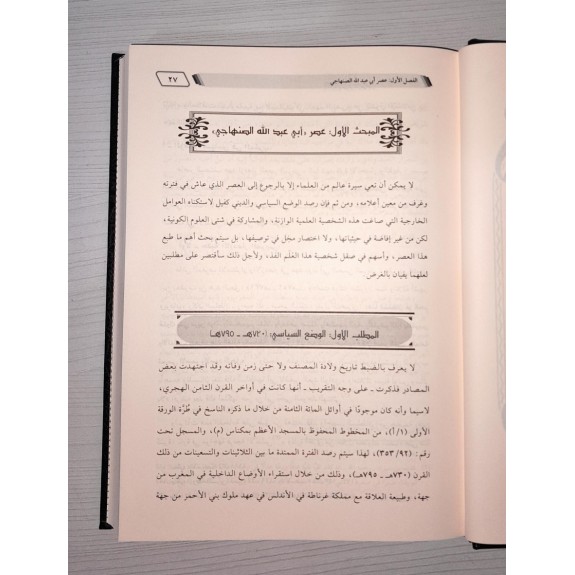 الفصل الأول: عصر أبي عبد الله الصنهاجي
٢٧
المبحث الأول: عصر «أبي عبد الله الصنهاجي»
لا يمكن أن نعي سيرة عالم من العلماء إلا بالرجوع إلى العصر الذي عاش في فترته
وغرف من معين أعلامه، ومن ثم فإن رصد الوضع السياسي والديني كفيل لاستكناه العوامل
الخارجية التي صاغت هذه الشخصية العلمية الوازنة، والمشاركة في شتى العلوم الكونية،
لكن من غير إفاضة في حيثياتها، ولا اختصار مخل في توصيفها، بل سيتم بحث أهم ما طبع
هذا العصر، وأسهم في صقل شخصية هذا العَلَم الفذ، ولأجل ذلك سأقتصر على مطلبين
لعلهما يفيان بالغرض.
المطلب الأول: الوضع السياسي: (٧٢٠هـ - ٧٩٥هـ)
لا يعرف بالضبط تاريخ ولادة المصنف ولا حتى زمن وفاته وقد اجتهدت بعض
المصادر فذكرت - على وجه التقريب - أنها كانت في أواخر القرن الثامن الهجري،
لاسيما وأنه كان موجودًا في أوائل المائة الثامنة من خلال ما ذكره الناسخ في طُرَّة الورقة
الأولى (١/أ)، من المخطوط المحفوظ بالمسجد الأعظم بمكناس (م)، والمسجل تحت
رقم: (٣٥٣/٩٢)، لهذا سيتم رصد الفترة الممتدة ما بين الثلاثينات والتسعينات من ذلك
القرن (٧٣٠هـ - ٧٩٥هـ)، وذلك من خلال استقراء الأوضاع الداخلية في المغرب من
جهة، وطبيعة العلاقة مع مملكة غرناطة في الأندلس في عهد ملوك بني الأحمر من جهة